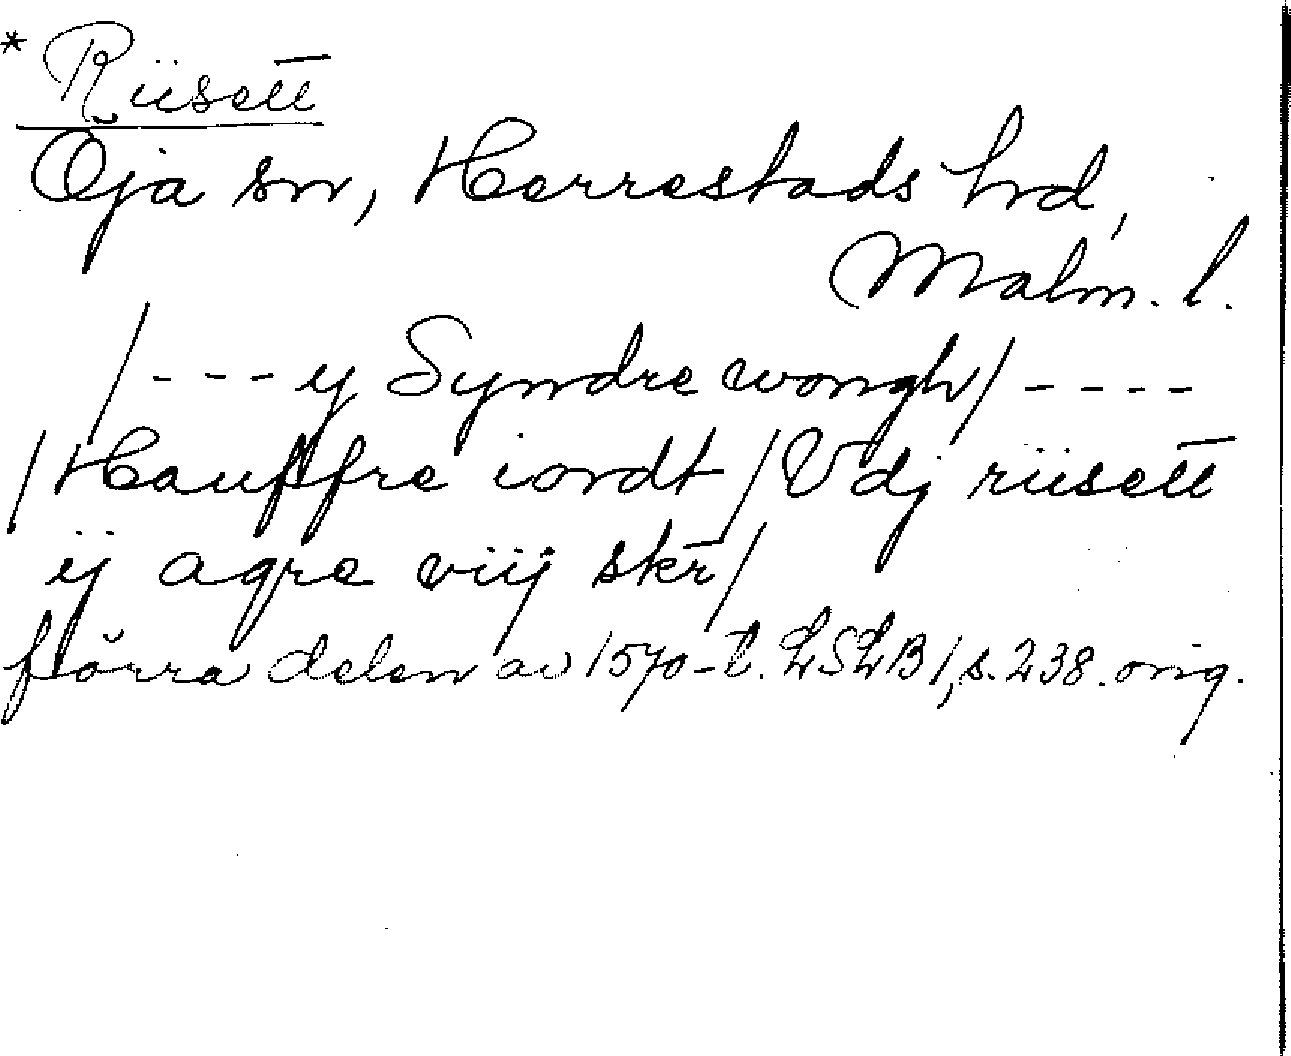 * Riisett
Öja sn, Herrestads hrd,
Malm. l.
/--- ij Syndre wongh/ ----
/Hauffre iordt/ Vdj riisett
ij agre viij skr/
förra delen av 1570-t. LSLB 1, s. 238. orig.